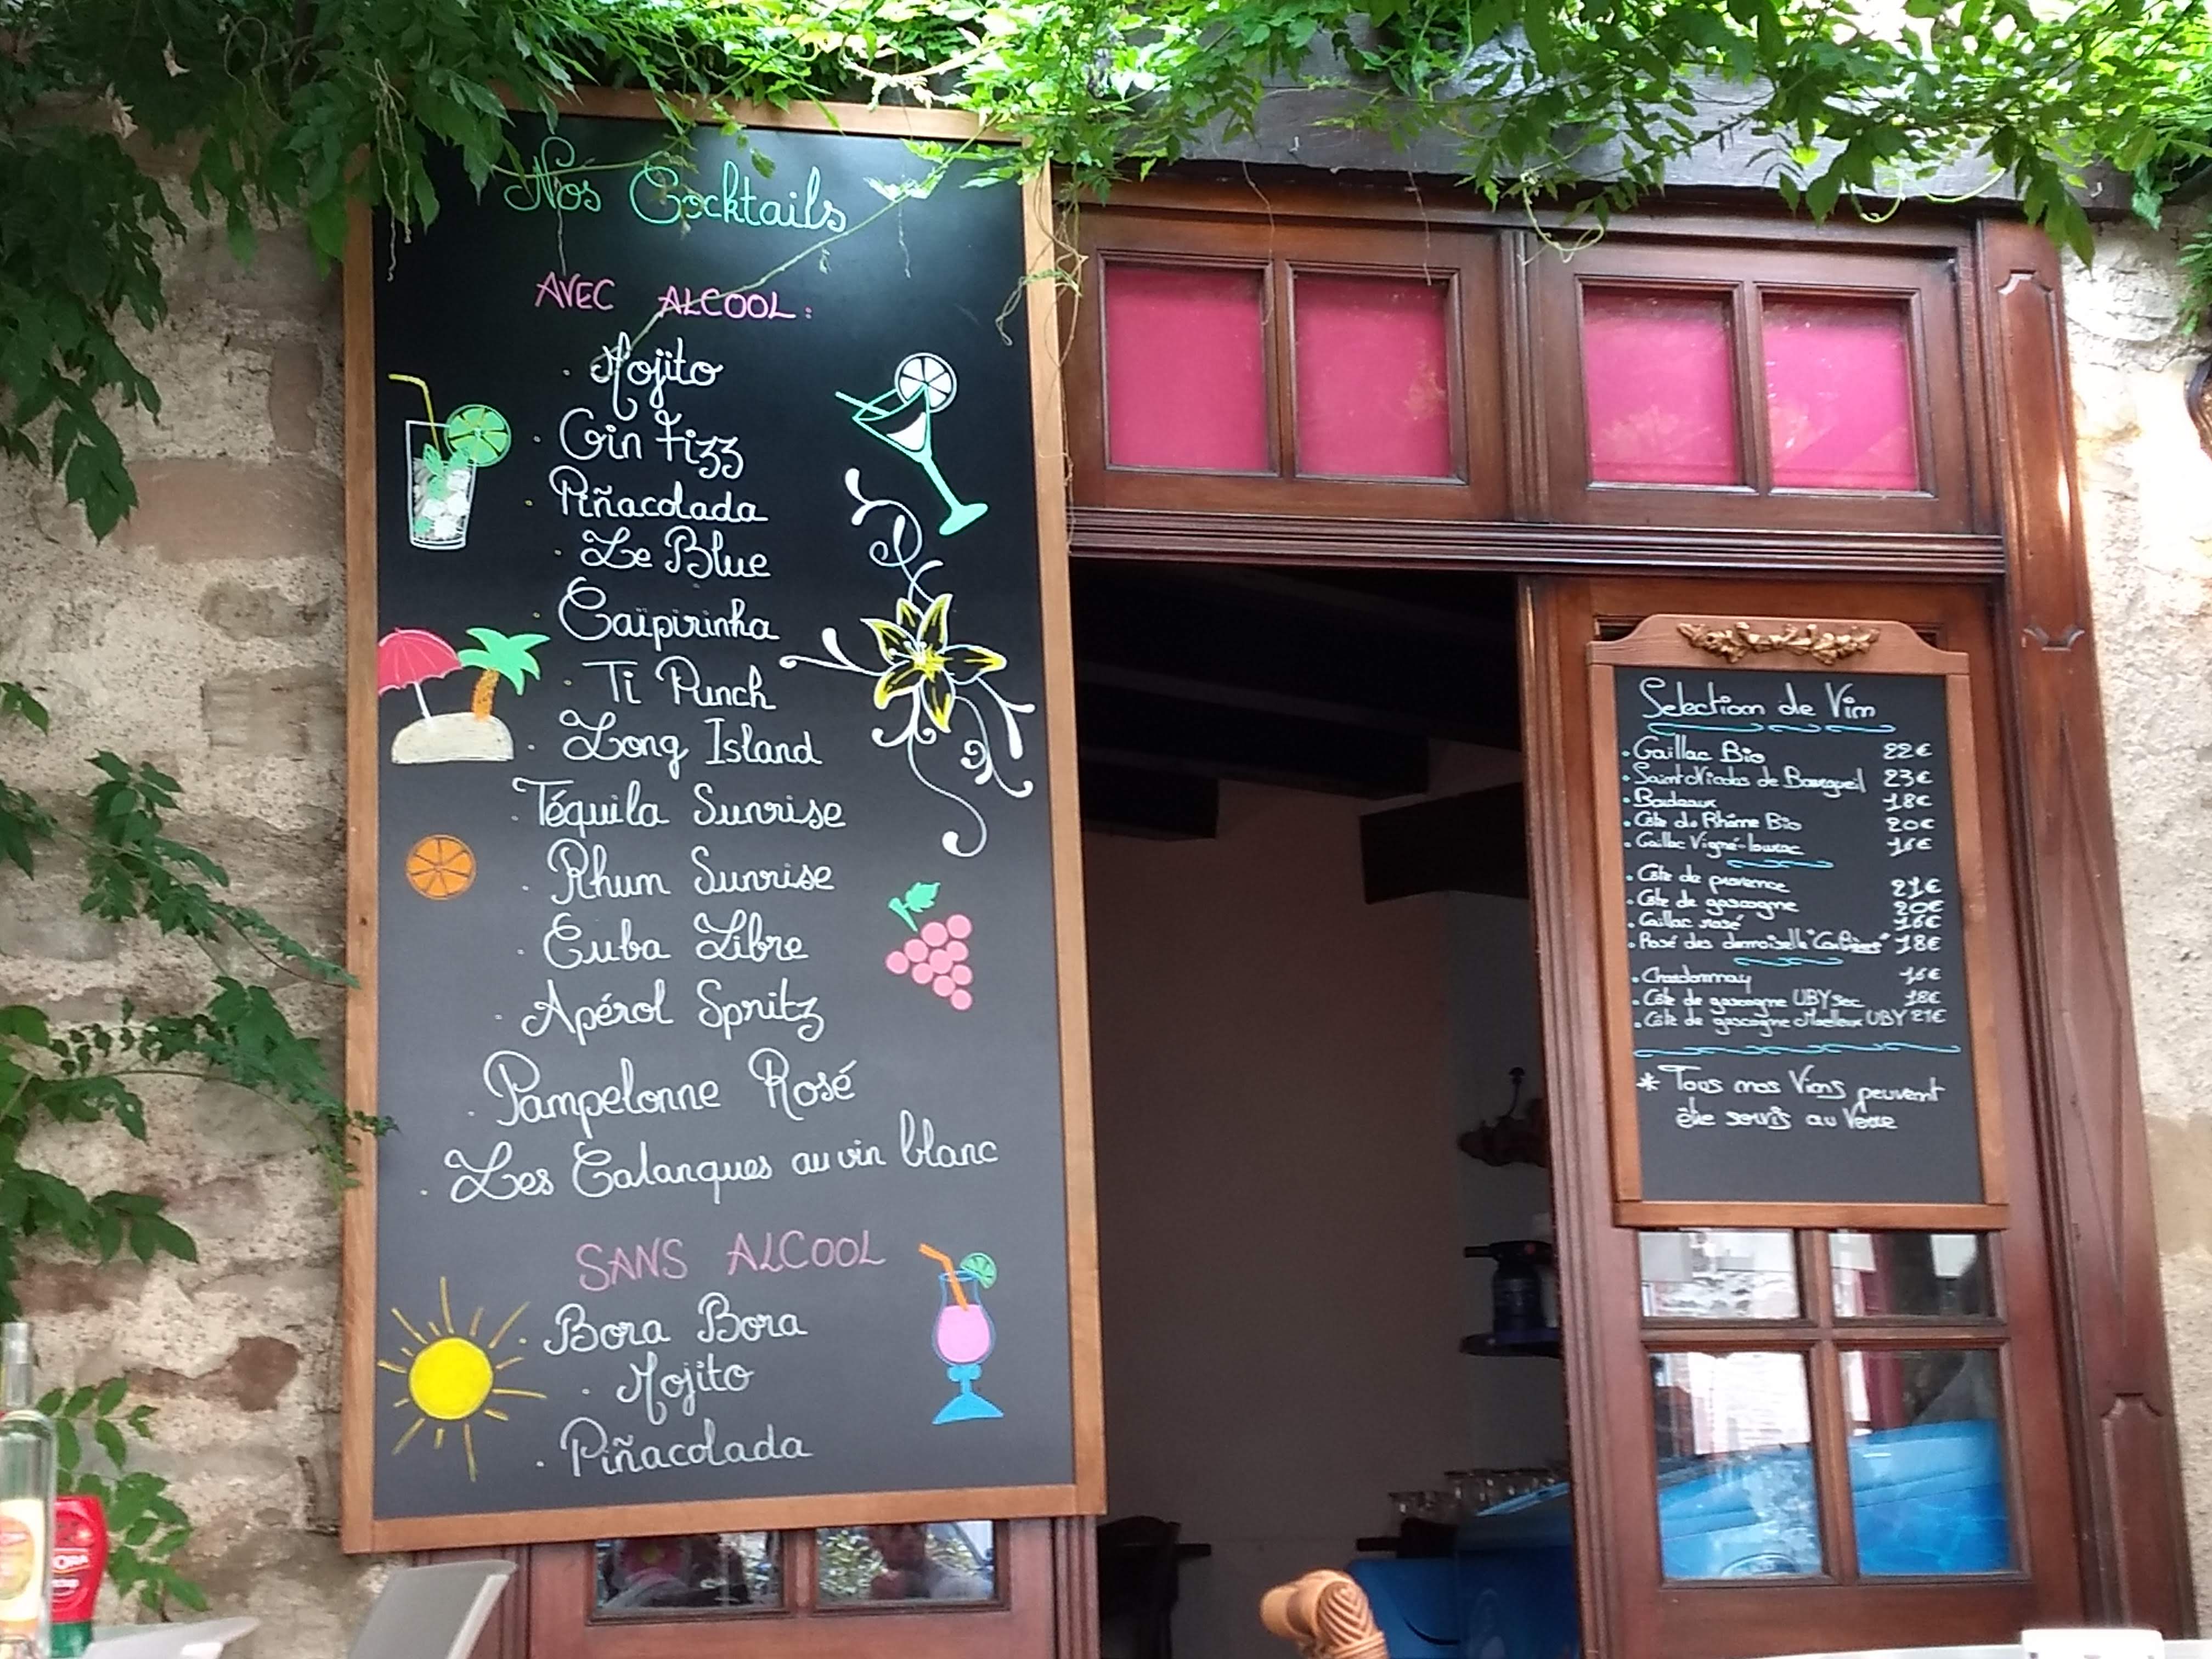 Nos Cocktails
AVEC ALCOOL:
. Mojito
. Gin Fizz
. Piñacolada
. Le Blue
. Caïpirinha
. Ti Punch
. Long Island
. Téquila Sunrise
. Rhum Sunrise
. Cuba Libre
. Apérol Spritz
. Pampelonne Rosé
. Les Calanques au vin blanc
SANS ALCOOL
. Bora Bora
. Mojito
. Piñacolada
Selection de Vin
. Gaillac Bio 22€
. Saint Nicolas de Bourgueil 23€
. Bordeaux 18€
. Côte du Rhône Bio 20€
. Gaillac Vigné-lourac 16€
. Côte de provence 21€
. Côte de gascogne 20€
. Gaillac rosé 16€
. Rosé des demoiselle "Corbières" 18€
. Chardonnay 16€
. Côte de gascogne UBY sec 18€
. Côte de gascogne Moelleux UBY 21€
* Tous nos Vins peuvent
être servis au Verre